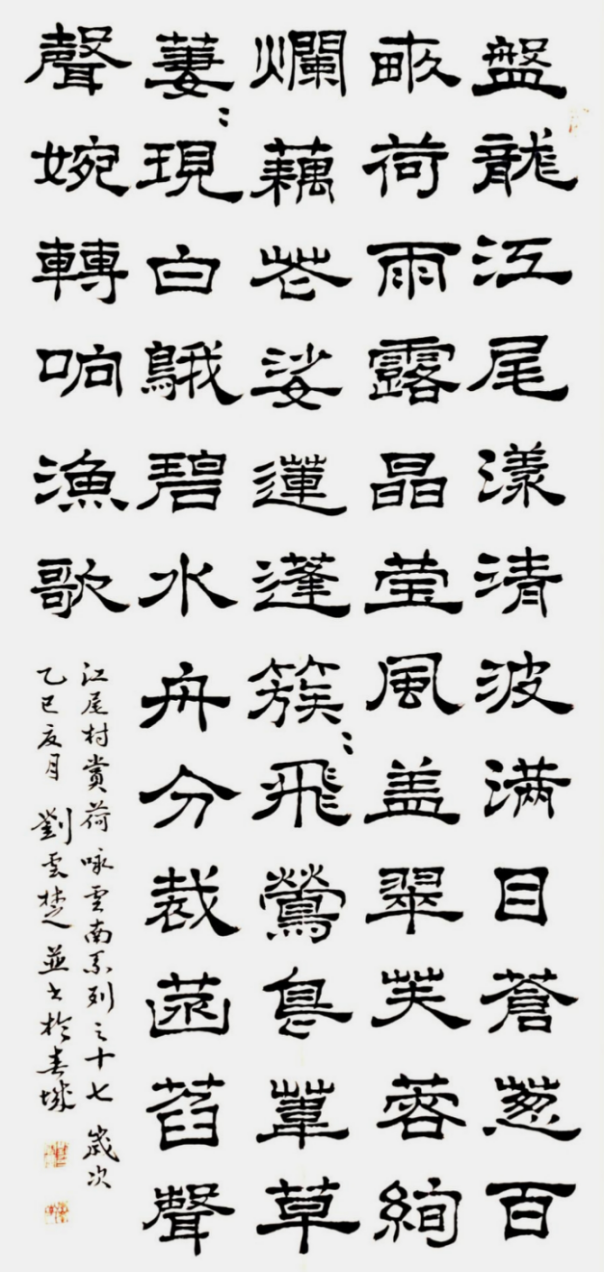 盤龍江尾漾清波满目蒼葱百
畝荷雨露晶莹風盖翠芙蓉絢
爛藕花娑蓮蓬簇〻飛鶯息葦草
萋〻現白鵝碧水舟分裁菡萏聲
聲婉轉响漁歌
江尾村賞荷 咏雲南系列之十七 歲次
乙巳夏月 劉雲楚並书於春城